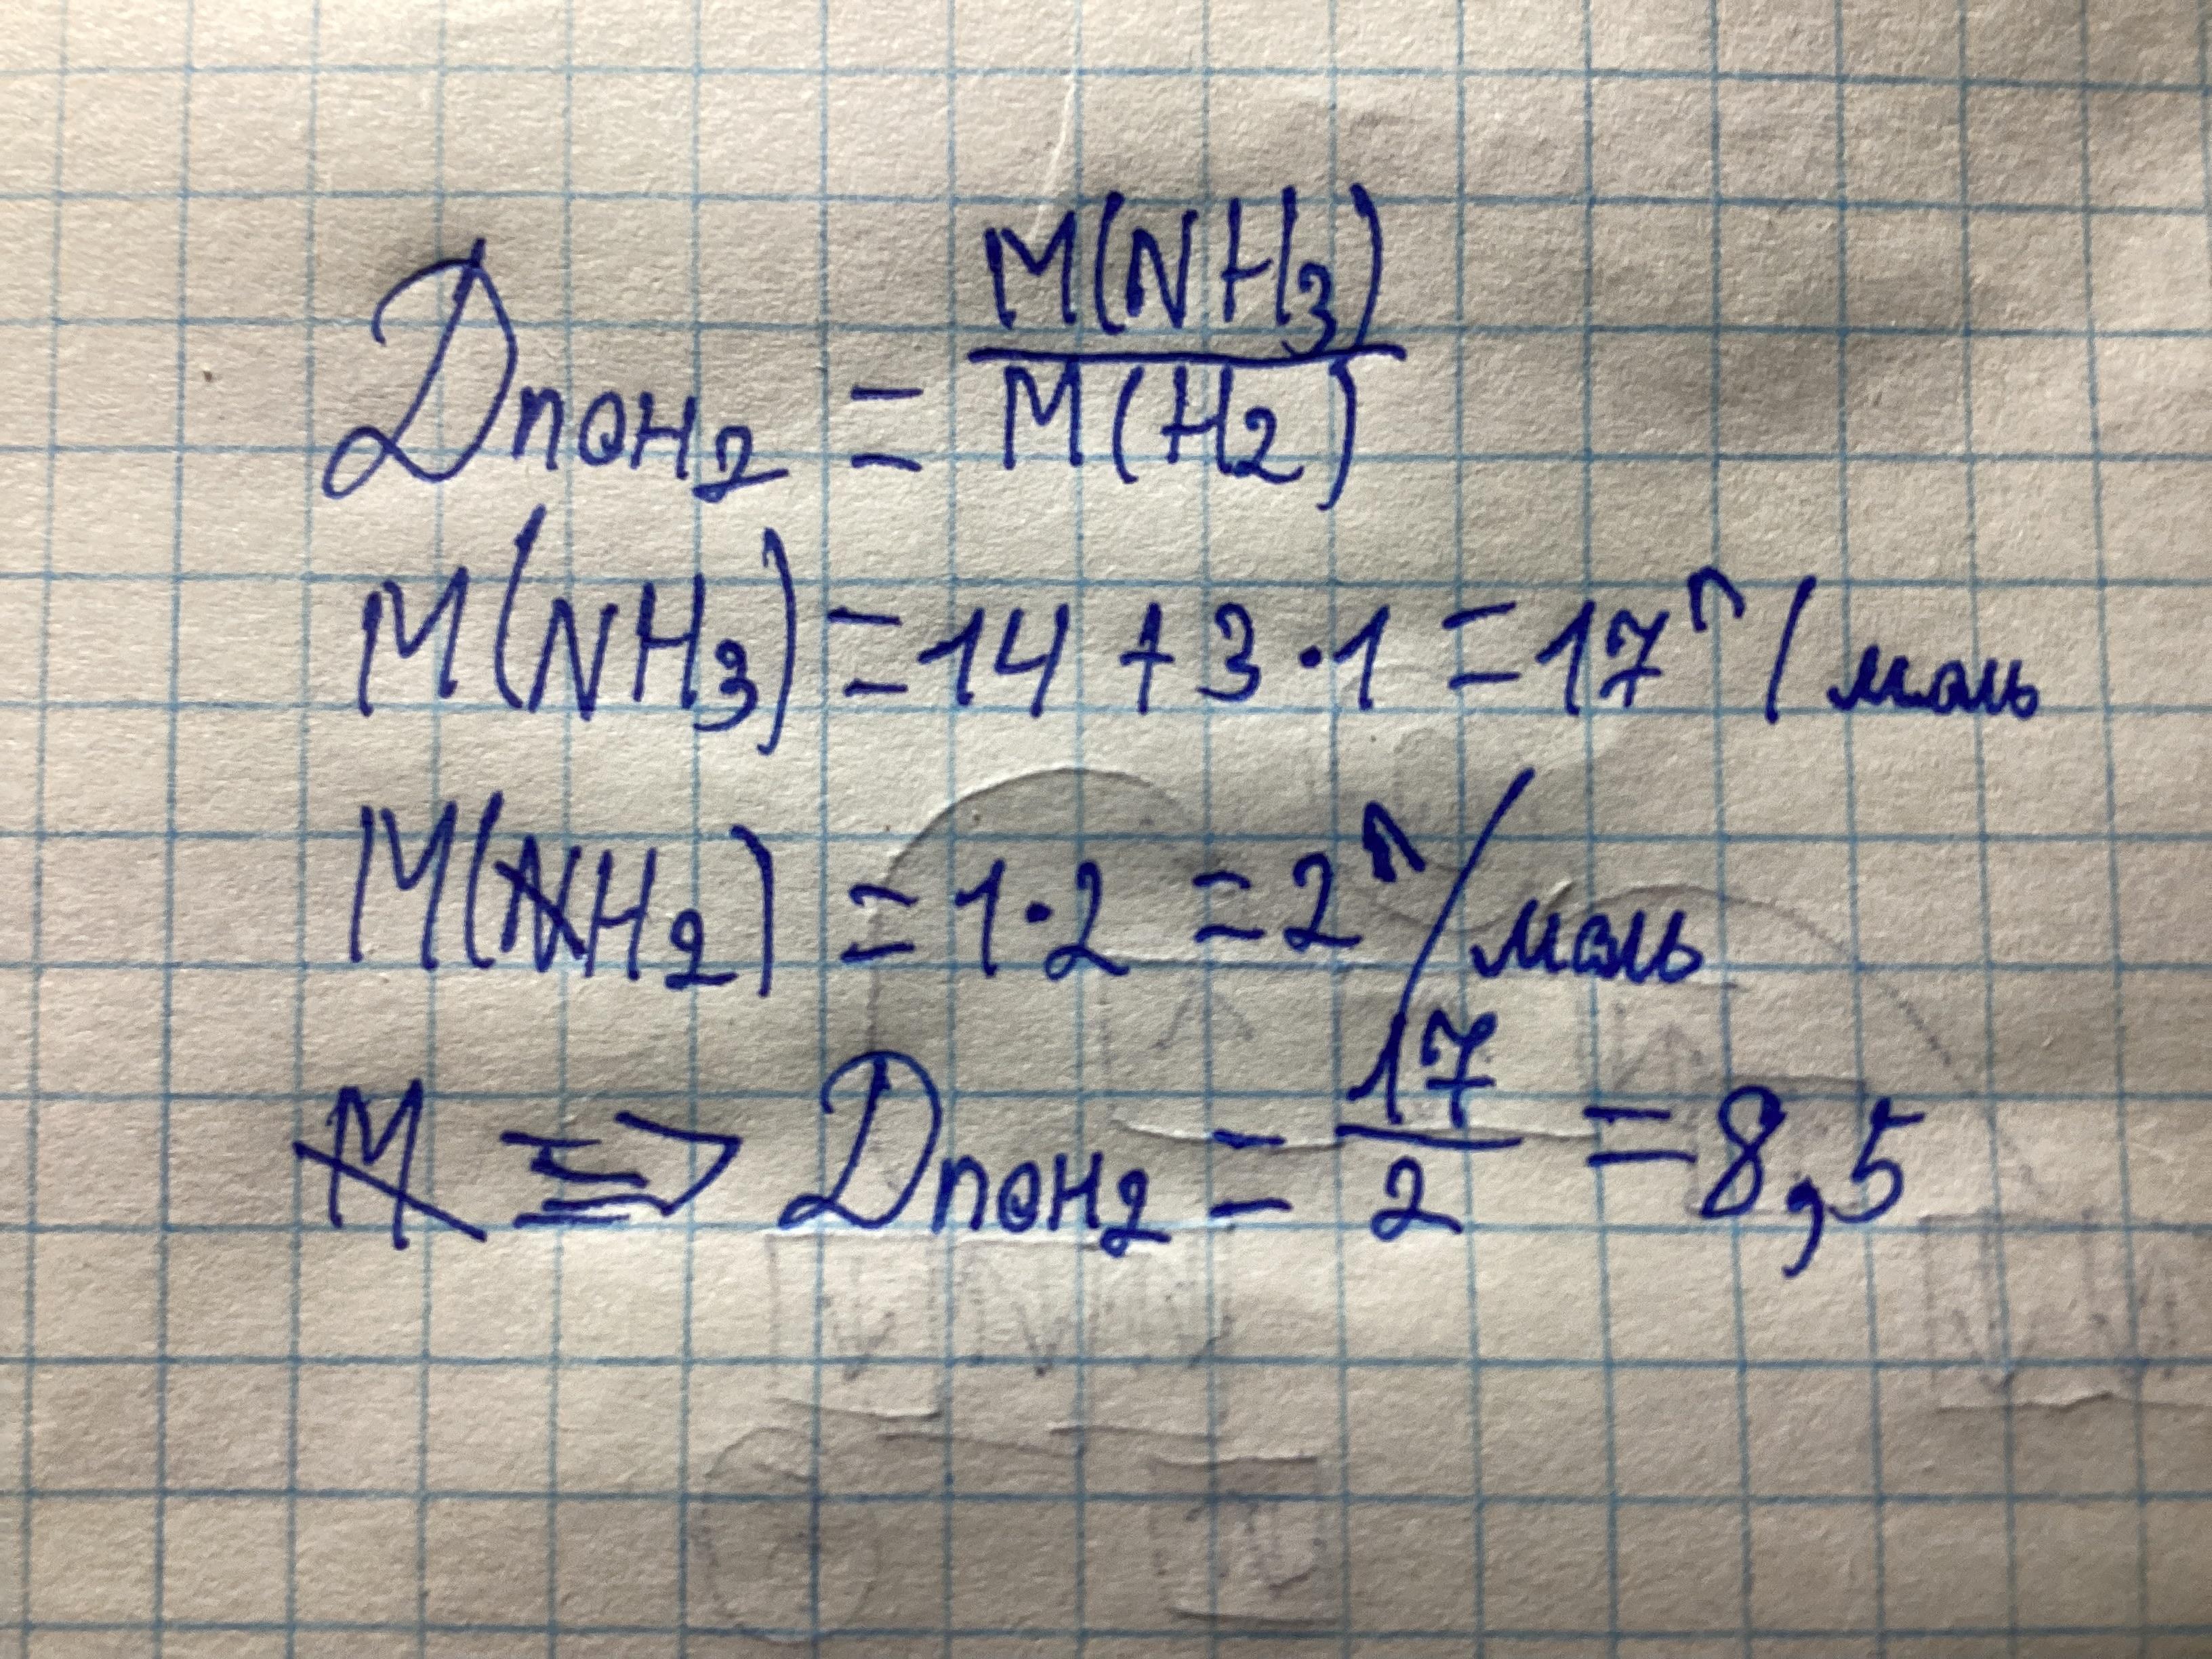 D по H₂ = M(NH₃) / M(H₂)
M(NH₃) = 14 + 3 · 1 = 17 г/моль
M(H₂) = 1 · 2 = 2 г/моль
⇒ D по H₂ = 17 / 2 = 8,5